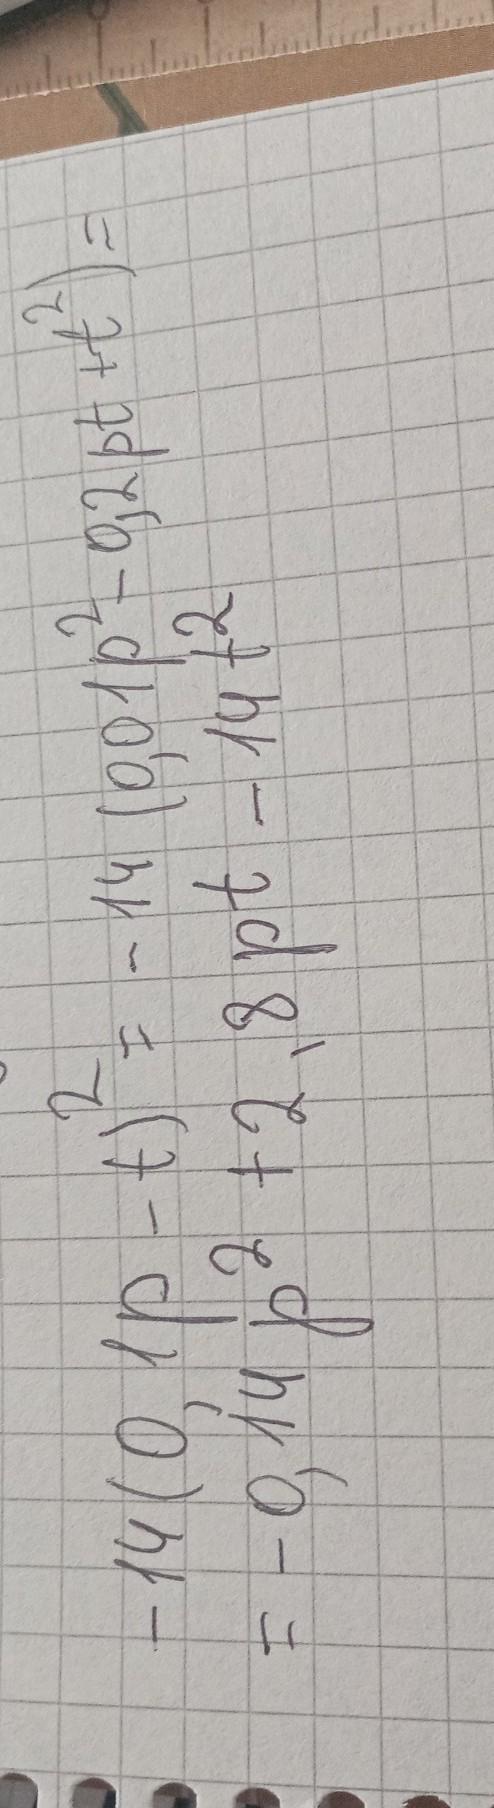 -14(0,1p - t)² = -14(0,01p² - 0,2pt + t²) =
= -0,14p² + 2,8pt - 14t²